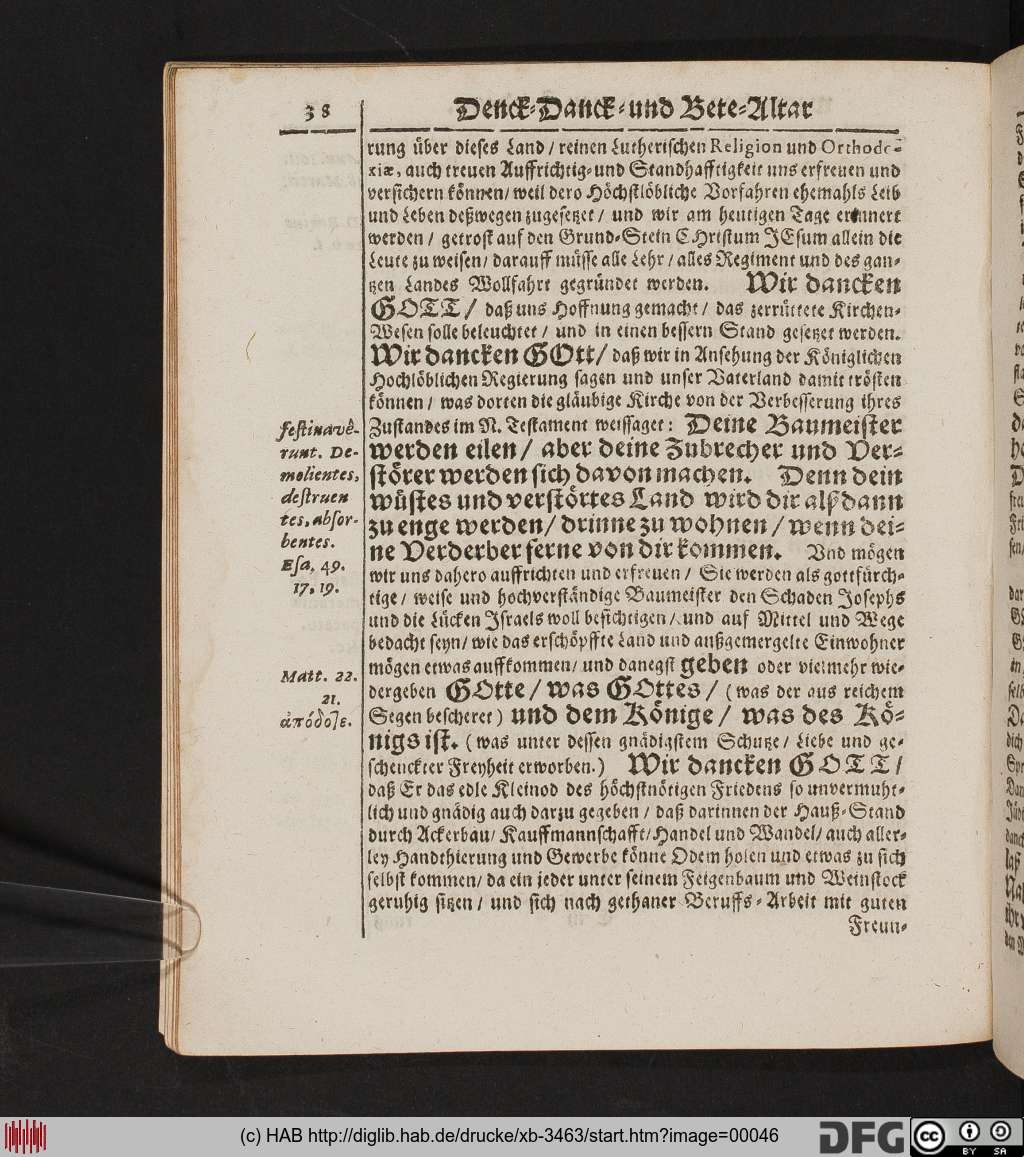 38
Denck-Danck-und Bete-Altar
rung über dieses Land / reinen Lutherischen Religion und Orthodo-
xiæ, auch treuen Auffrichtig-und Standhafftigkeit uns erfreuen und
versichern können / weil dero Höchstlöbliche Vorfahren ehemahls Leib
und Leben deßwegen zugesetzet / und wir am heutigen Tage erinnert
werden / getrost auf den Grund-Stein CHristum JEsum allein die
Leute zu weisen / darauff müsse alle Lehr / alles Regiment und des gan-
tzen Landes Wollfahrt gegründet werden. Wir dancken
GOTT / daß uns Hoffnung gemacht / das zerrüttete Kirchen-
Wesen solle beleuchtet / und in einen bessern Stand gesetzet werden.
Wir dancken GOtt / daß wir in Ansehung der Königlichen
Hochlöblichen Regierung sagen und unser Vaterland damit trösten
können / was dorten die gläubige Kirche von der Verbesserung ihres
Zustandes im N. Testament weissaget: Deine Baumeister
werden eilen / aber deine Zubrecher und Ver-
störer werden sich davon machen. Denn dein
wüstes und verstörtes Land wird dir alßdann
zu enge werden / drinne zu wohnen / wenn dei-
ne Verderber ferne von dir kommen. Vnd mögen
wir uns dahero auffrichten und erfreuen / Sie werden als gottfürch-
tige / weise und hochverständige Baumeister den Schaden Josephs
und die Lücken Jsraels woll besichtigen / und auf Mittel und Wege
bedacht seyn / wie das erschöpffte Land und außgemergelte Einwohner
mögen etwas auffkommen / und danegst geben oder vielmehr wie-
dergeben GOtte / was GOttes / (was der aus reichem
Segen bescheret) und dem Könige / was des Kö-
nigs ist. (was unter dessen gnädigstem Schutze / Liebe und ge-
schenckter Freyheit erworben.) Wir dancken GOTT /
daß Er das edle Kleinod des höchstnötigen Friedens so unvermuht-
lich und gnädig auch darzu gegeben / daß darinnen der Hauß-Stand
durch Ackerbau / Kauffmannschafft / Handel und Wandel / auch aller-
ley Handthierung und Gewerbe könne Odem holen und etwas zu sich
selbst kommen / da ein jeder unter seinem Feigenbaum und Weinstock
geruhig sitzen / und sich nach gethaner Beruffs-Arbeit mit guten
Freun-
festinavê-
runt. De-
molientes,
destruen
tes, absor-
bentes.
Esa, 49.
17. 19.
Matt. 22.
21.
ἀπόδοτε.
(c) HAB http://diglib.hab.de/drucke/xb-3463/start.htm?image=00046
DFG
cc
BY SA